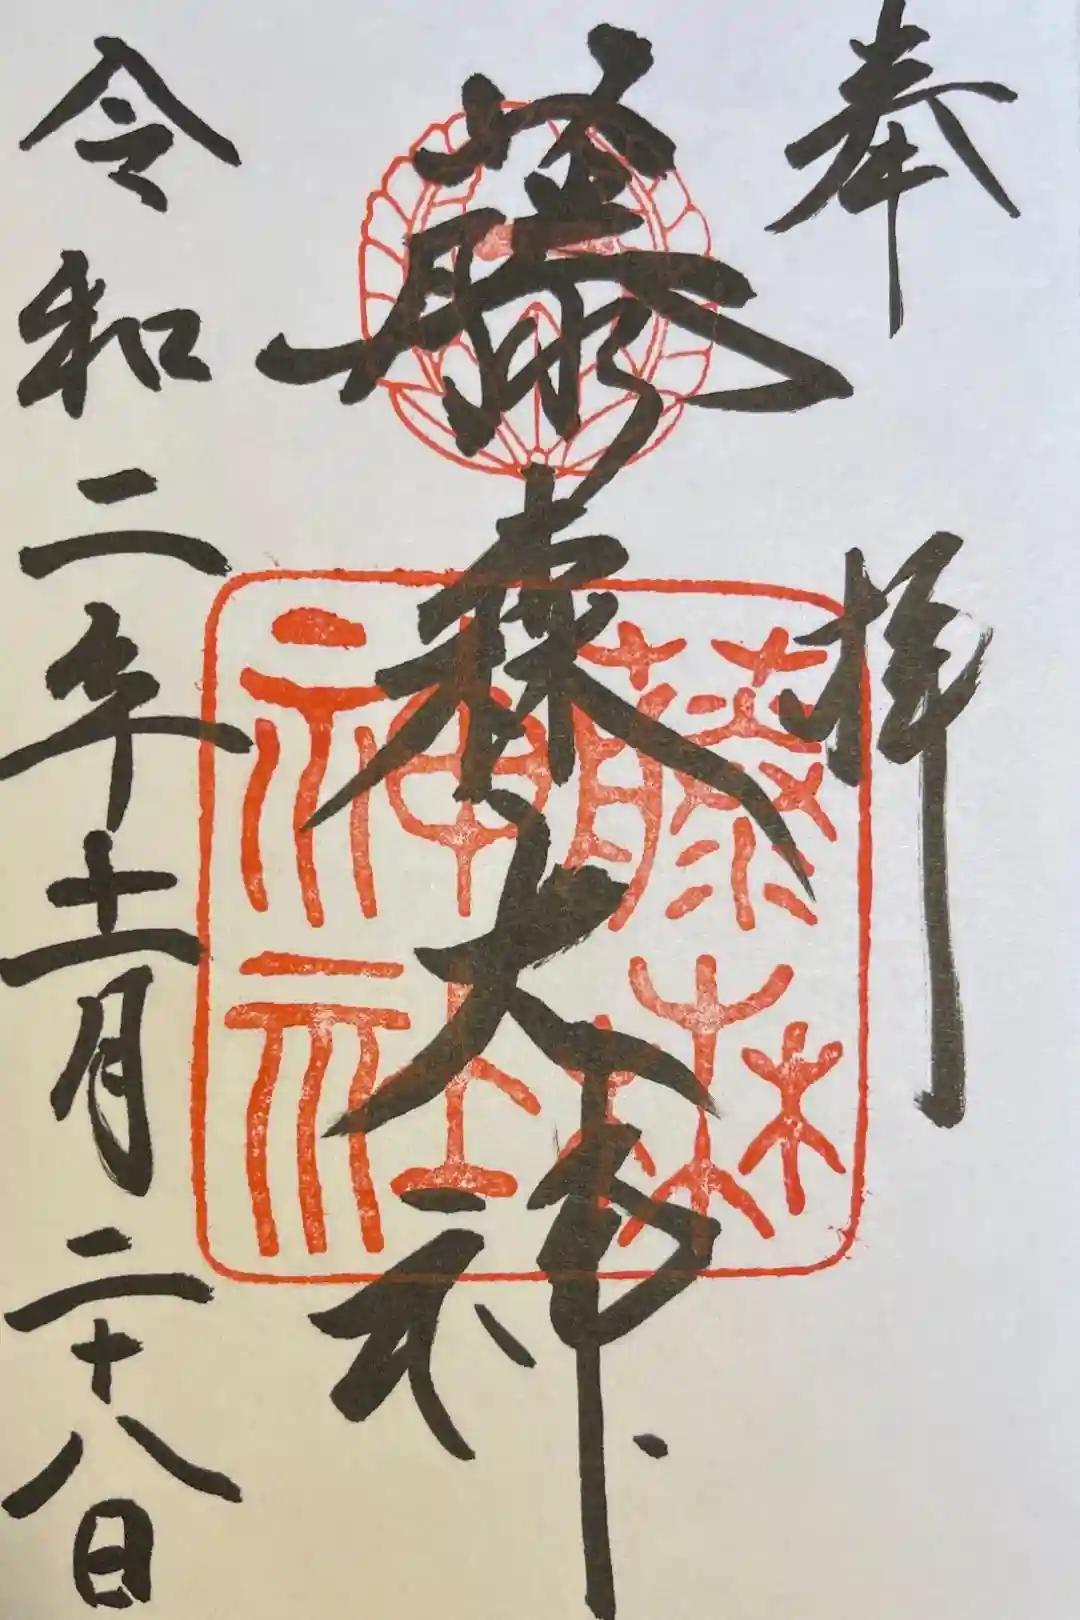 奉拝
藤森大神
令和二年十一月二十八日
藤森
神社